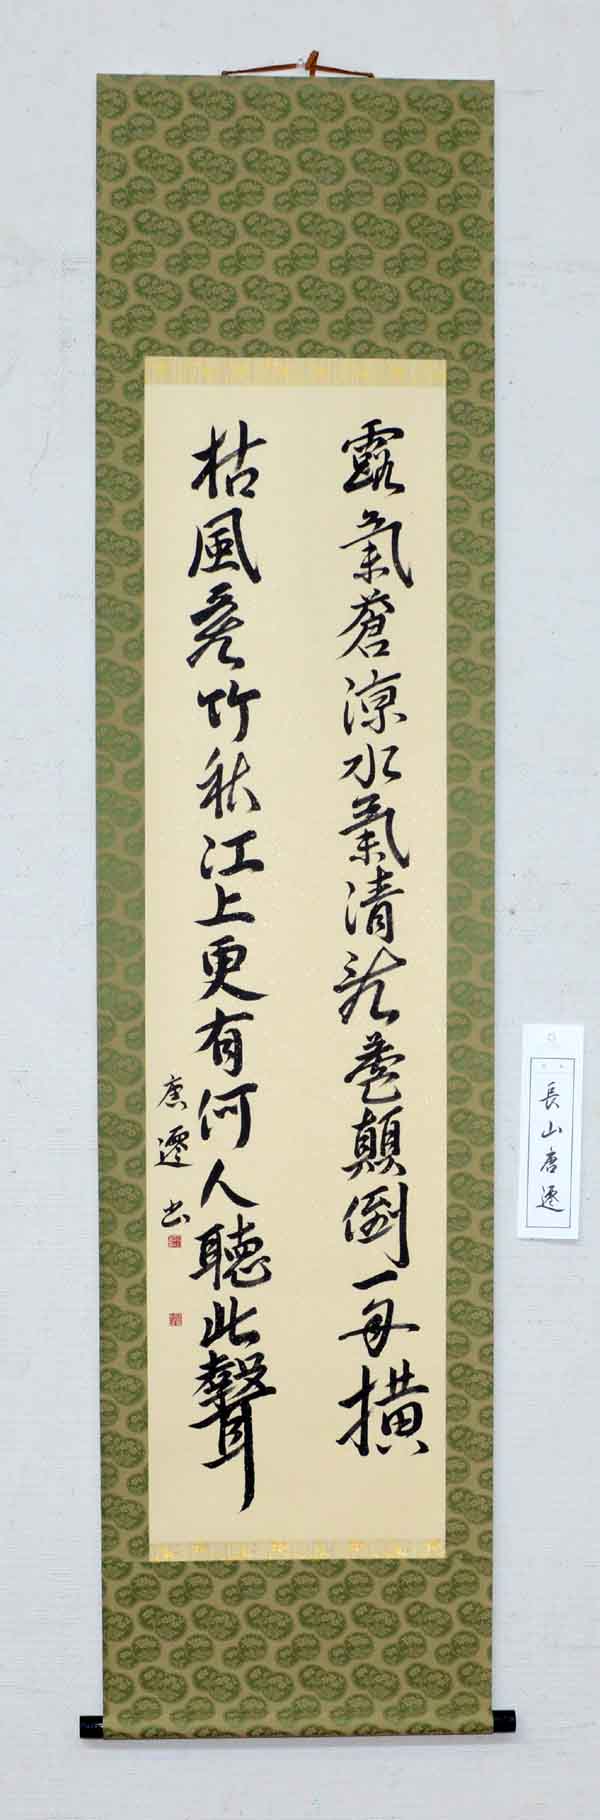 露氣蒼涼水氣清蘆顛倒一舟横
枯風竹秋江上更有何人聽此聲
唐遷書
長山唐遷